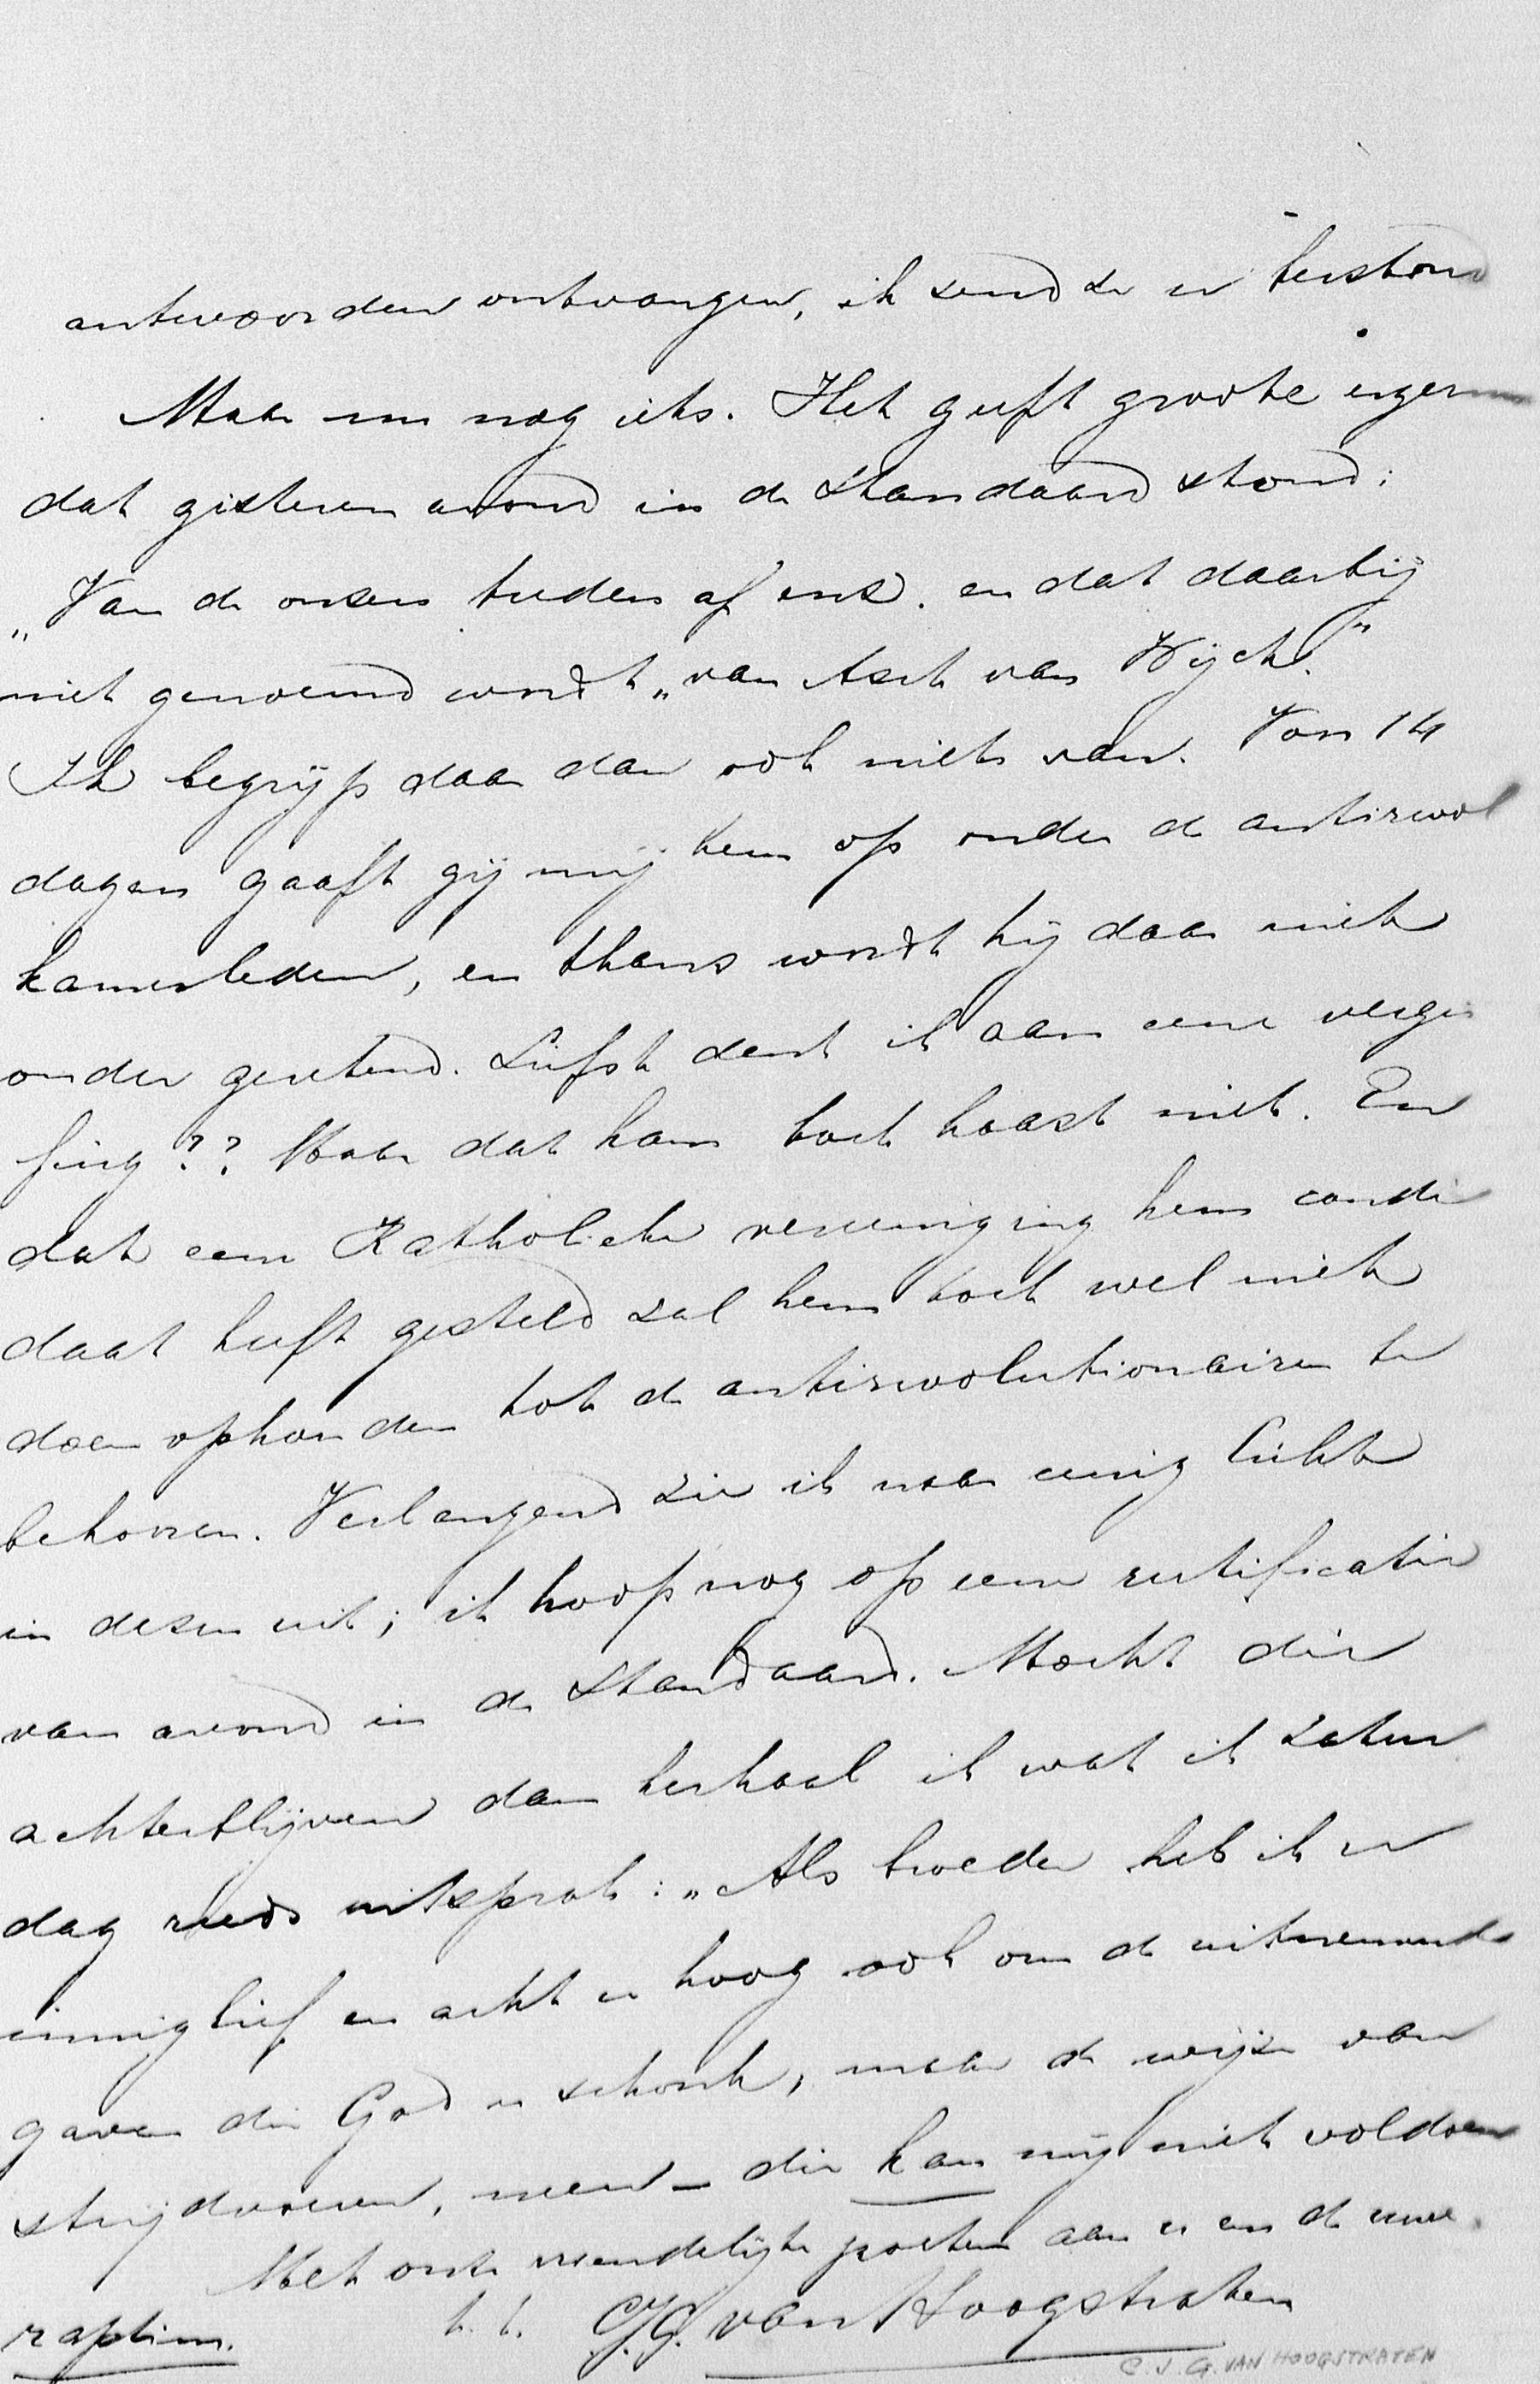 antwoorden ontvangen, ik zend ze u terstond
Maar nu nog iets. Het geeft groote ergernis
dat gisteren avond in de Standaard stond:
„Van de onzen treden af enz. en dat daarbij
niet genoemd wordt „van Asch van Wijck."
Ik begrijp daar dan ook niets van. Voor 14
dagen gaaft gij mij hem op onder de antirevol
kamerleden, en thans wordt hij daar niet
onder gerekend. Liefst denk ik aan eene vergis
sing?? Maar dat kan toch haast niet. En
dat een Katholieke vereeniging hem candi
daat heeft gesteld zal hem toch wel niet
doen ophouden tot de antirevolutionairen te
behooren. Verlangend zie ik naar eenig licht
in dezen uit; ik hoop nog op eene rectificatie
van avond in de Standaard. Mocht die
achterblijven dan herhaal ik wat ik Zatur
dag reeds uitsprak: „Als broeder heb ik u
innig lief en acht u hoog ook om de uitnemende
gaven die God u schonk, maar de wijze van
strijdvoeren, neen – die kan mij niet voldoen
Met onze vriendelijke groeten aan u en de uwe.
t. t. C.J.G. van Hoogstraten
raptim.
C. J. G. VAN HOOGSTRATEN